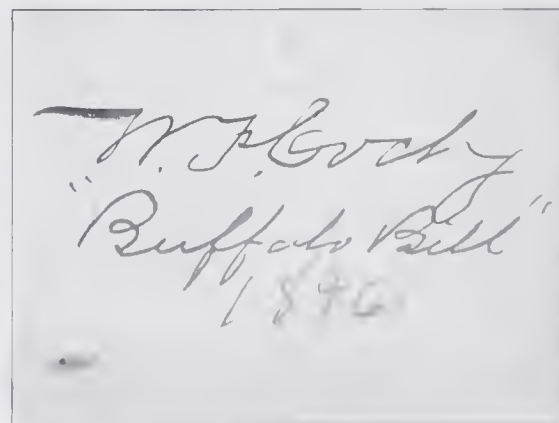 W. F. Cody
"Buffalo Bill"
1896